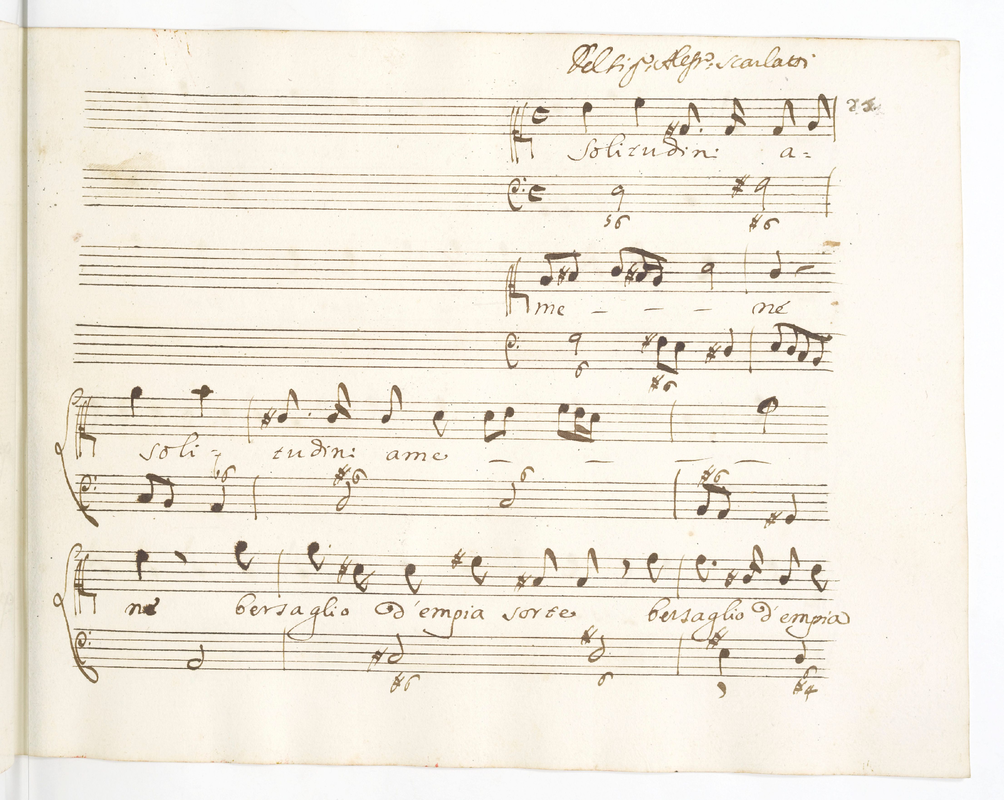 Del Sig.r Aless.o Scarlatti
Solitudin: a=
56 #6
me - - - né
6 #6
soli - tudin: ame - - -
6 #6 6 #6
né bersaglio d'empia sorte bersaglio d'empia
#6 6 #4